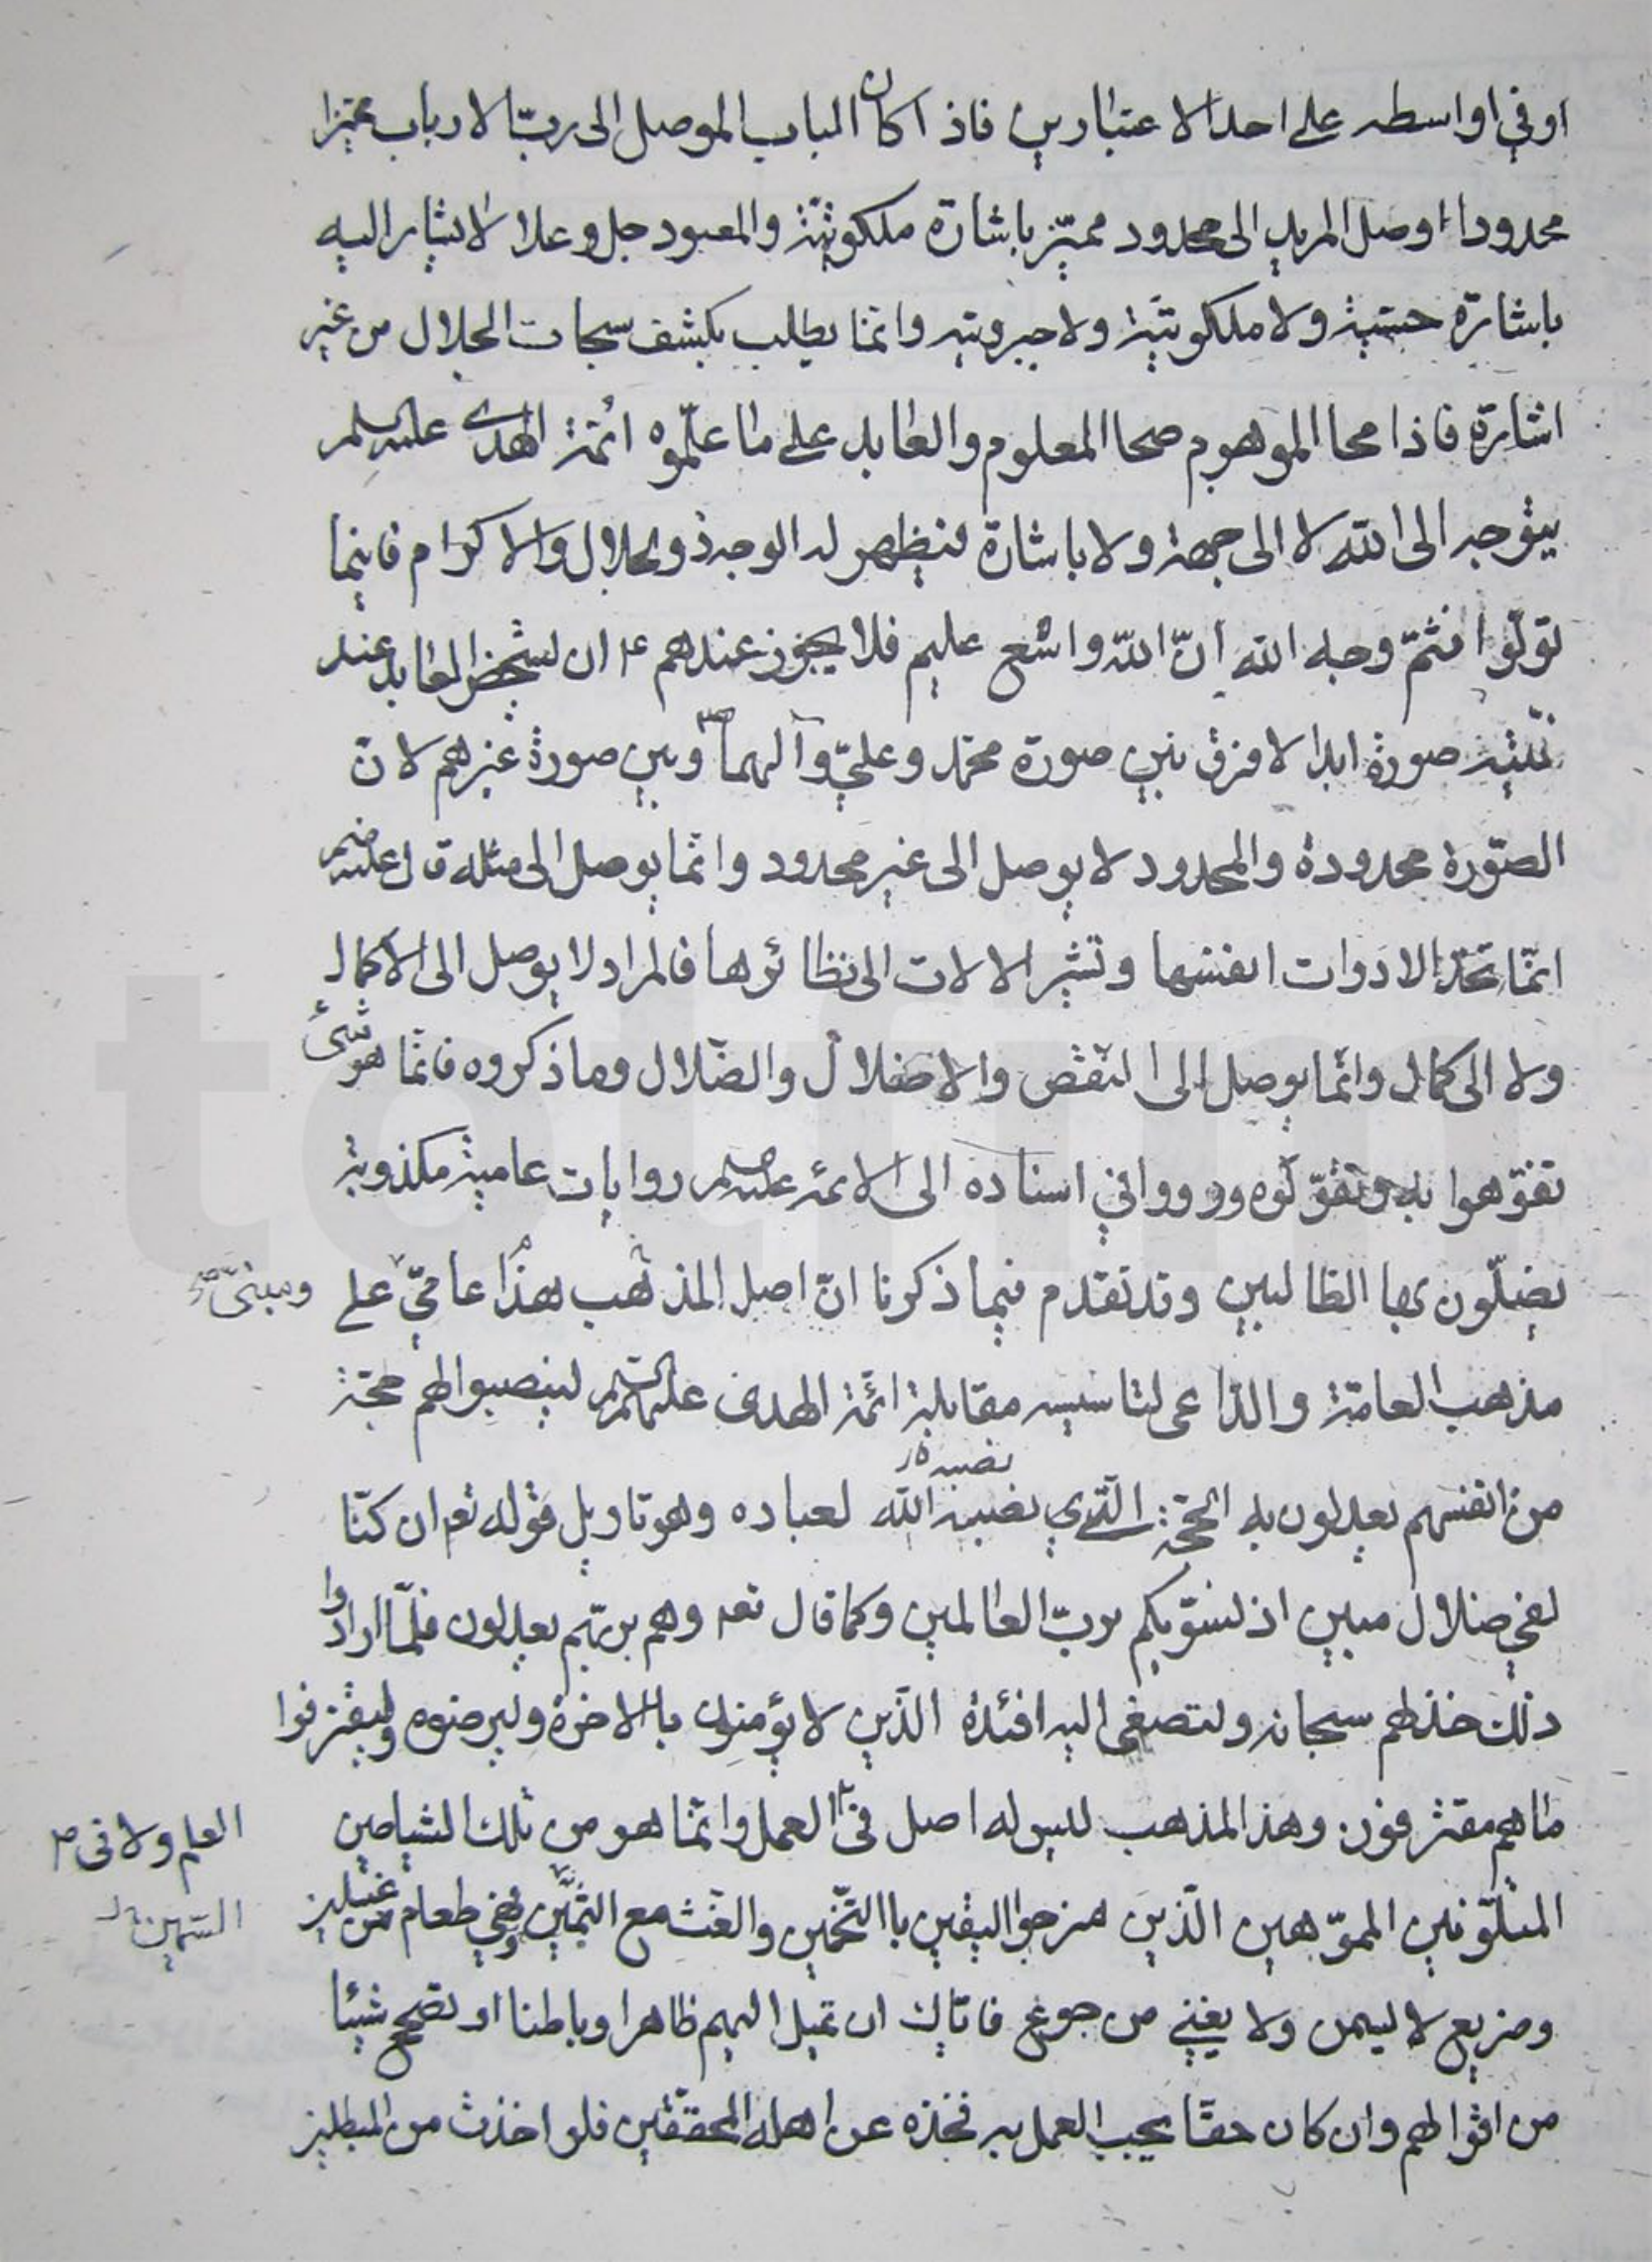 او في اواسطه على احد الاعتبارين فاذا كان الباب الموصل الى ربّ الارباب مميّزا
محدودا اوصل المريد الى محدود مميّز باشارة ملكوتيّة والمعبود جل وعلا لا يشار اليه
باشارة حسّيّة ولا ملكوتيّة ولا جبروتيّه وانّما يطلب بكشف سبحات الجلال من غير
اشارة فاذا محا الموهوم صحا المعلوم والعابد على ما علّموه ائمّة الهدى عليهم السلم
يتوجه الى الله لا الى جهة ولا باشارة فيظهر له الوجه ذو الجلال والاكرام فاينما
تولّوا فثمّ وجه الله انّ الله واسع عليم فلا يجوز عندهم ع ان يشخص العابد عند
نيّته صورة ابدا لا فرق بين صورة محمّد وعليّ وآلهما ص وبين صورة غيرهم لانّ
الصّورة محدودة والمحدود لا يوصل الى غير محدود وانّما يوصل الى مثله قال علیه السلم
انّما تحدّ الادوات انفسها وتشير الالات الى نظائرها فالمراد لا يوصل الى الاكمال
ولا الى كمال وانّما يوصل الى النّقص والاضلال والضّلال وما ذكروه فانّما هو شئ
تفوّهوا به وتقوّلوه ورووا في اسناده الى الائمّه عليهم السلم روايات عامية مكذوبة
يضلّون بها الطالبين وقد تقدم فيما ذكرنا انّ اصل المذهب هذا عاميّ على
ومبنيّ صح
مذهب العامّة والدّاعى لتاسيسه مقابلة ائمّة الهدى عليهم السلم لينصبوا لهم حجّة
نصبه
من انفسهم يعدلون به الحجّة الّذي نصبه الله لعباده وهو تاويل قوله تع ان كنّا
لفي ضلال مبين اذ نسوّيكم بربّ العالمين وكما قال تع وهم بربّهم يعدلون فلمّا ارادوا
ذلك خذلهم سبحانه ولتصغى اليه افئدة الّذين لا يؤمنون بالاخرة وليرضوه وليقترفوا
ما هم مقترفون وهذا المذهب ليس له اصل في العمل وانّما هو من تلك الشياطين
العلم ولا فى
المتلوّنين المموّهين الّذين مزجوا اليقين بالتّخمين والغث مع الثّمين فهي طعام من غسلين
السّمين
وضريع لا يسمن ولا يغني من جوع فايّاك ان تميل اليهم ظاهرا وباطنا او تصحح شيئا
من اقوالهم وان كان حقّا يجب العمل به فخذه عن اهله المحققين فلو اخذت من المبطلين